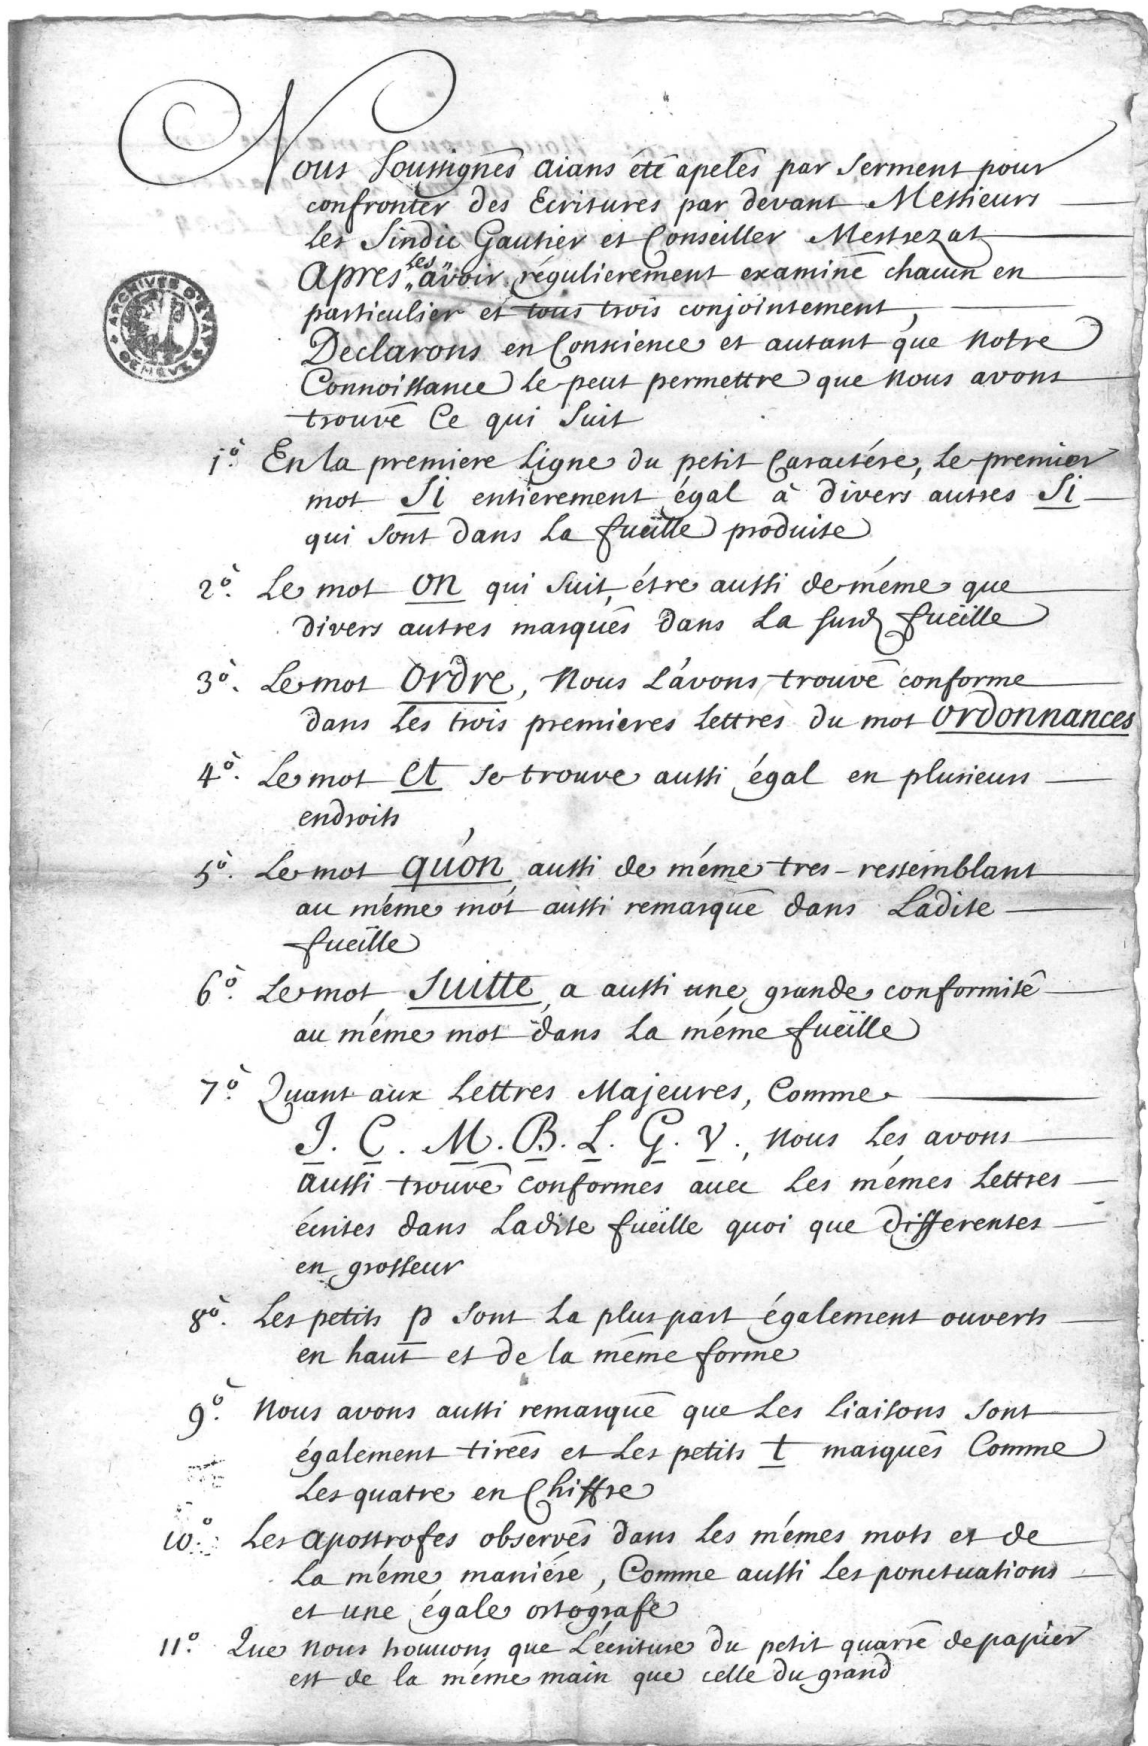 Nous Soussignés aians été apelés par Serment pour
confronter des Ecritures par devant Messieurs
les Sindic Gautier et Conseiller Mestrezat
apres les avoir régulierement examiné chacun en
particulier et tous trois conjointement,
Declarons en Conscience et autant que Notre
Connoissance le peut permettre que Nous avons
trouvé Ce qui Suit
ARCHIVES D'ETAT
GENEVE
1º. En la premiere Ligne du petit Caractére, le premier
mot Si entierement égal à divers autres Si
qui sont dans la fueïlle produite
2º. Le mot on qui Suit, étre aussi de méme que
divers autres marqués dans la susd fueïlle
3º. Le mot ordre, Nous L'avons trouvé conforme
dans les trois premieres Lettres du mot ordonnances
4º. Le mot et se trouve aussi égal en plusieurs
endroits
5º. Le mot qu'on aussi de méme tres-ressemblant
au méme mot aussi remarqué dans Ladite
fueïlle
6º. Le mot suitte a aussi une grande conformité
au méme mot dans la méme fueïlle
7º. Quant aux Lettres Majeures, Comme
J. C. M. B. L. G. V., Nous les avons
aussi trouvé conformes avec les mémes Lettres
écrites dans Ladite fueïlle quoi que differentes
en grosseur
8º. Les petits p sont la plus part également ouverts
en haut et de la méme forme
9º. Nous avons aussi remarqué que les liaisons sont
également tirées et les petits t marqués Comme
les quatre en Chiffre
10º. Les apostrofes observés dans les mémes mots et de
la méme maniére, Comme aussi les ponctuations
et une égale ortografe
11º. Que nous trouvons que L'écriture du petit quarré de papier
est de la méme main que celle du grand